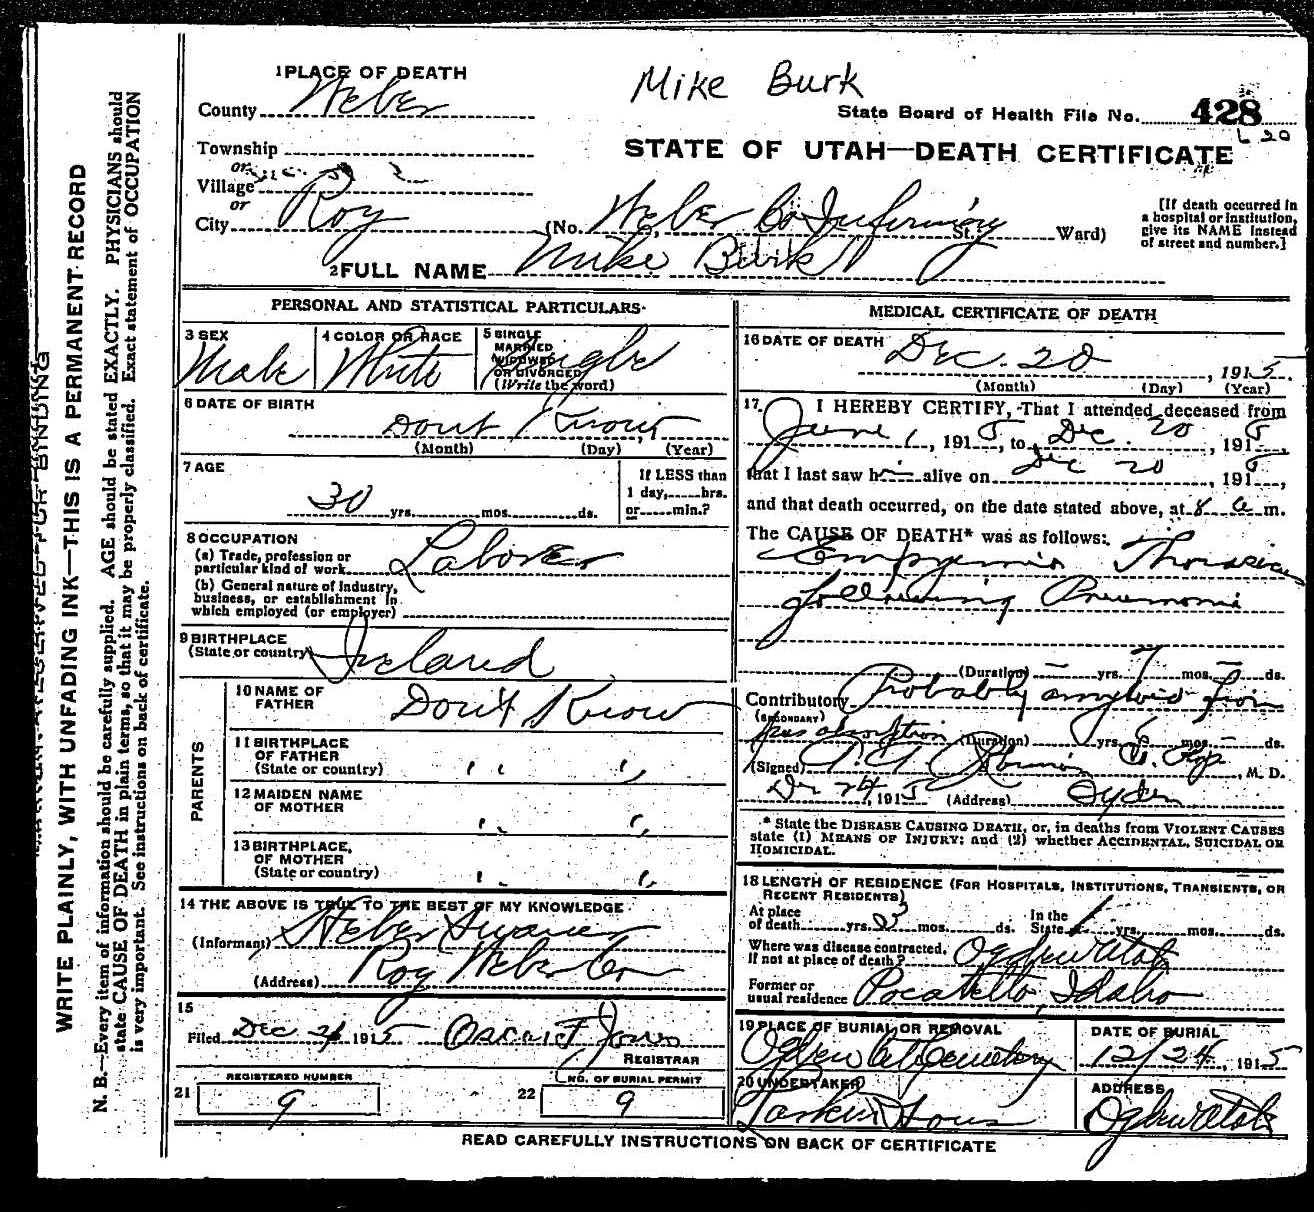 Mike Burk
1 PLACE OF DEATH
County Weber
State Board of Health File No. 428
Township
STATE OF UTAH—DEATH CERTIFICATE
or
Village
or
City Roy (No. Weber Co Infirmary St. Ward)
[If death occurred in a hospital or institution, give its NAME instead of street and number.]
2 FULL NAME Mike Burk
PERSONAL AND STATISTICAL PARTICULARS
3 SEX Male
4 COLOR OR RACE White
5 SINGLE MARRIED WIDOWED OR DIVORCED (Write the word) Single
6 DATE OF BIRTH
Dont Know
(Month) (Day) (Year)
7 AGE
30 yrs. mos. ds.
If LESS than 1 day, hrs. or min.?
8 OCCUPATION
(a) Trade, profession or particular kind of work Laborer
(b) General nature of industry, business, or establishment in which employed (or employer)
9 BIRTHPLACE
(State or country) Ireland
PARENTS
10 NAME OF FATHER Don't Know
11 BIRTHPLACE OF FATHER (State or country) " "
12 MAIDEN NAME OF MOTHER " "
13 BIRTHPLACE, OF MOTHER (State or country) " "
14 THE ABOVE IS TRUE TO THE BEST OF MY KNOWLEDGE
(Informant) Heber
(Address) Roy Weber Co
15
Filed Dec 1915
REGISTRAR
REGISTERED NUMBER
21 9
NO. OF BURIAL PERMIT
22 9
MEDICAL CERTIFICATE OF DEATH
16 DATE OF DEATH
Dec. 20, 1915
(Month) (Day) (Year)
17. I HEREBY CERTIFY, That I attended deceased from
June 1, 1915, to Dec. 20 1915,
that I last saw him alive on Dec 20 1915,
and that death occurred, on the date stated above, at 8 a m.
The CAUSE OF DEATH* was as follows:
Empyemia Thoracic
following Pneumonia
(Duration) yrs. 7 mos. ds.
Contributory Probably amyloid from
(SECONDARY)
pus absorption (Duration) yrs. 6 mos. ds.
(Signed) M. D.
Dec 24, 1915 (Address) Ogden
* State the DISEASE CAUSING DEATH, or, in deaths from VIOLENT CAUSES state (1) MEANS OF INJURY; and (2) whether ACCIDENTAL, SUICIDAL OR HOMICIDAL.
18 LENGTH OF RESIDENCE (FOR HOSPITALS, INSTITUTIONS, TRANSIENTS, OR RECENT RESIDENTS)
At place of death yrs. mos. ds. In the State yrs. mos. ds.
Where was disease contracted, If not at place of death? Ogden Utah
Former or usual residence Pocatello, Idaho
19 PLACE OF BURIAL OR REMOVAL
Ogden City Cemetery
DATE OF BURIAL
12/24, 1915
20 UNDERTAKER
Larkin & Sons
ADDRESS
Ogden Utah
READ CAREFULLY INSTRUCTIONS ON BACK OF CERTIFICATE
WRITE PLAINLY, WITH UNFADING INK—THIS IS A PERMANENT RECORD
N. B.—Every item of information should be carefully supplied. AGE should be stated EXACTLY. PHYSICIANS should
state CAUSE OF DEATH in plain terms, so that it may be properly classified. Exact statement of OCCUPATION
is very important. See instructions on back of certificate.